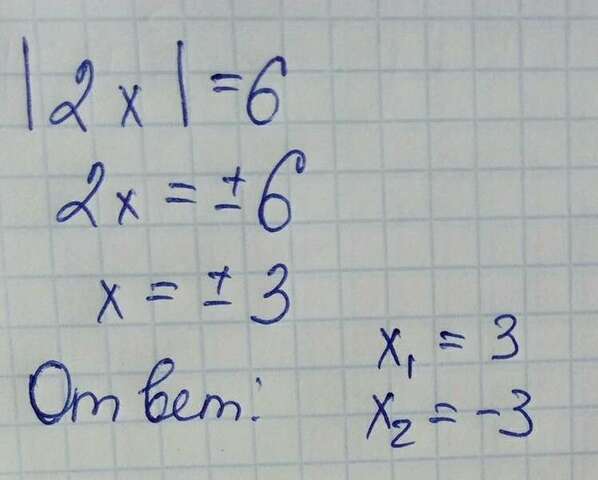 |2x|=6
2x=±6
x=±3
Ответ: x₁=3
x₂=-3